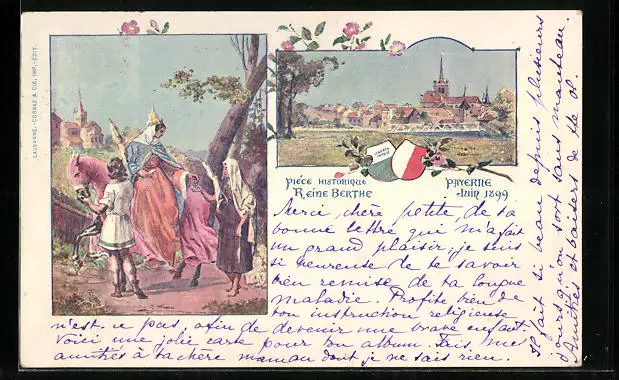 LAUSANNE.- CORBAZ & CIE, IMP.- ÉDIT.
PIÈCE HISTORIQUE
REINE BERTHE
PAYERNE
JUIN 1899
Merci, chère petite de ta
bonne lettre qui m'a fait
un grand plaisir, je suis
si heureuse de te savoir
bien remise de ta longue
maladie. Profite bien de
ton instruction religieuse
n'est-ce pas, afin de devenir une brave enfant.
Voici une jolie carte pour ton album. Fais mes
amitiés à ta chère maman dont je ne sais rien.
Il fait si beau depuis plusieurs
jours qu'on sort sans manteau.
Amitiés et baisers de